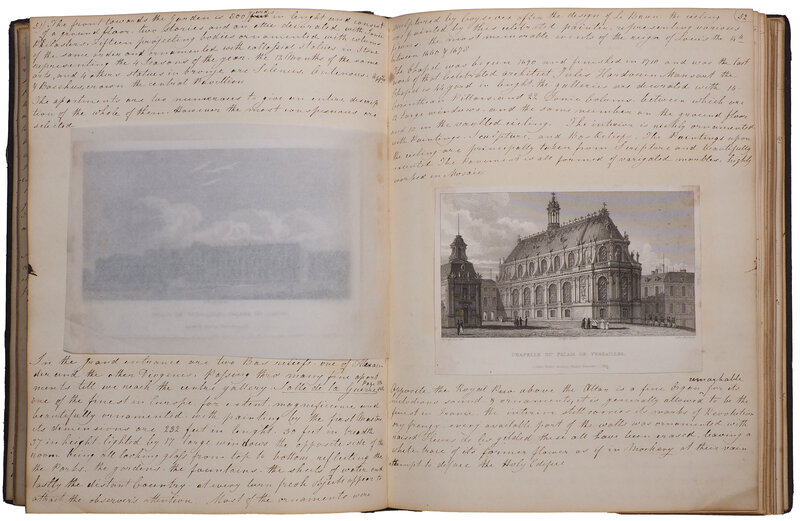 51 The front towards the Garden is 800 feet in lenght and consist
of a ground floor, two stories and are also decorated with Ionic
Pilasters. Fifteen projecting bodies ornamented with columns
of the same order and ornamented with collossal statues in stone
representing the 4 Seasons of the year. the 12 Months of the same
arts, and 4 others statues in bronze are Silenus, Antenous, Apollo
& Bacchus, crown the central Pavillion
The apartments are too numerous to give an entire descrip
tion of the whole of them. However the most conspicuous are
selected
In the grand entrance are two Bas reliefs, one of Alexan
der and the other Diogenes. Passing thro many fine apart
ments till we reach the center gallery Salle de la Guerre
one of the finest in Europe for extent, magnificence and
beautifully ornamented with painting by the first Masters
its dimensions are 232 feet in lenght. 30 feet in breadth
37 in height lighted by 17 large windows the opposite side of the
room being all looking glass from top to bottom, reflecting the
the Parks, the gardens, the fountains, the sheets of water and
lastly the distant Country at every turn fresh objects appear to
attract the observer's attention. Most of the ornaments were
52
sculptured by Coysevox after the design of Le Brun. the ceiling
is painted by this celebrated painter, representing various
of the most memorable events of the reign of Louis the 14th
between 1660 & 1678
The Chapel was begun 1690 and finished in 1710 and was the last
work of that celebrated architect Jules Hardouin Mansart the
Chapel is 44 yard in lenght the galleries was decorated with 16
Corinthian Pillars and 22 Dome Columns, between which are
12 large windows and the same number on the ground floor
and 12 in the vaulted ceiling. The interior is richly ornamented
with Paintings, Sculpture, and Basrelief. The Paintings upon
the ceiling are principally taken from Scripture and beautifully
executed. The Pavement is all formed of varigated marbles, highly
worked in Mosaic
CHAPELLE DU PALAIS DE VERSAILLES.
remarkable
Opposite the Royal Pew above the Altar is a fine Organ for its
melodious sound & ornaments, it is generally allowed to be the
finest in France. the interior still carries its marks of Revolution
ary frenzy every available part of the walls was ornamented with
raised Fleurs de lis gilded these all have been erased, leaving a
white trace of its former flower as if in Mockery at their vain
attempt to deface the Holy Edifice